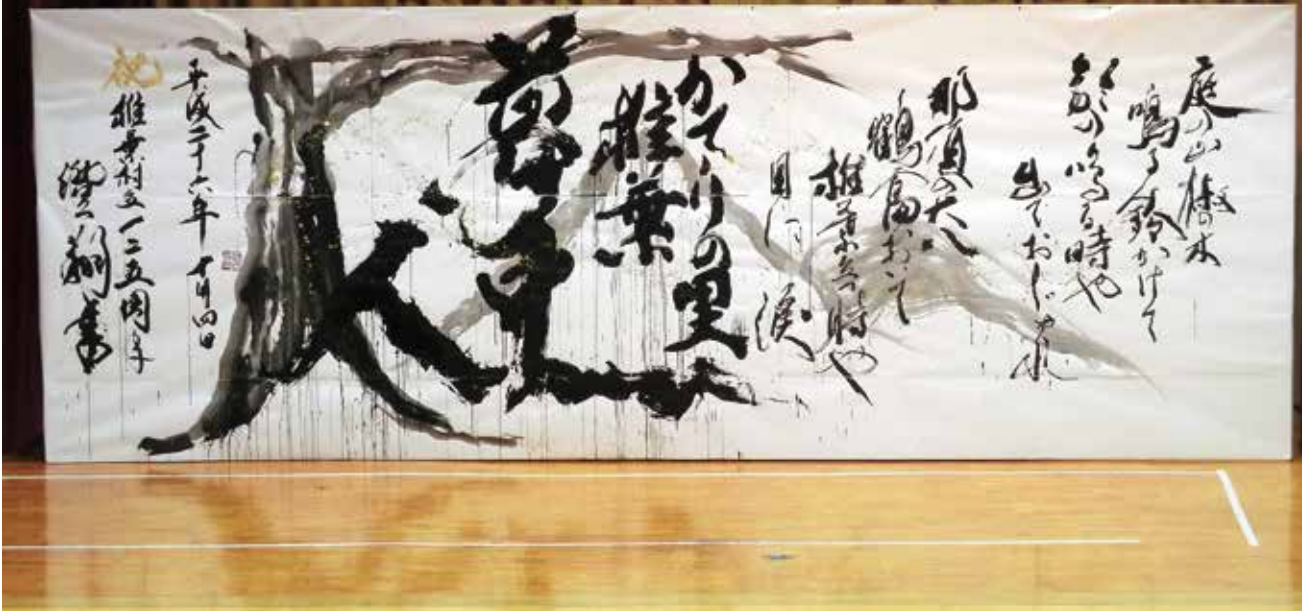 庭の山椒の木
鳴る鈴かけて
鈴の鳴る時や
出ておじゃれ
那須の大八
鶴富おいて
椎葉立つ時や
目に涙
かてりの里
椎葉
平成二十六年 十月四日
祝
椎葉村立一二五周年
翔書